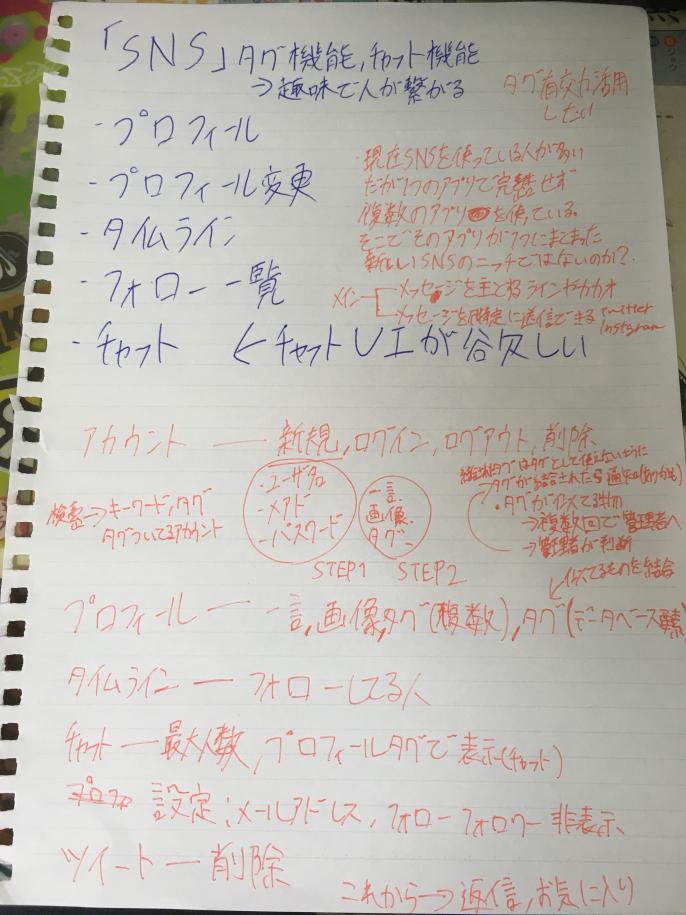 「SNS」タグ機能,チャット機能
⇒趣味で人が繋がる
タグ有効活用
したい
・プロフィール
・プロフィール変更
・タイムライン
・フォロー一覧
・チャット ←チャットUIが欲しい
・現在SNSを使っている人が多い
だが1つのアプリで完結せず
複数のアプリを使っている。
そこでそのアプリが1つにまとまった
新しいSNSのニッチではないのか?
メイン
メッセージを主とするラインやカカオ
メッセージを不特定に送信できるtwitter
Instgram
アカウント ― 新規,ログイン,ログアウト,削除
・ユーザ名
・メアド
・パスワード
STEP1
一言
画像
タグ
STEP2
検索→キーワード,タグ
タグついてるアカウント
タグはタグとして使えないように
タグが結合された場合通知(ありかも)
・タグが似てる物
→複数回で管理者へ
→管理者が判断
似てるものを結合
プロフィール ― 一言,画像,タグ(複数),タグ(データベース
タイムライン ― フォローしてる人
チャット ― 最大人数,プロフィールタグで表示(チャット)
設定:メールアドレス,フォローフォロワー非表示
ツイート ― 削除
これから→返信,お気に入り